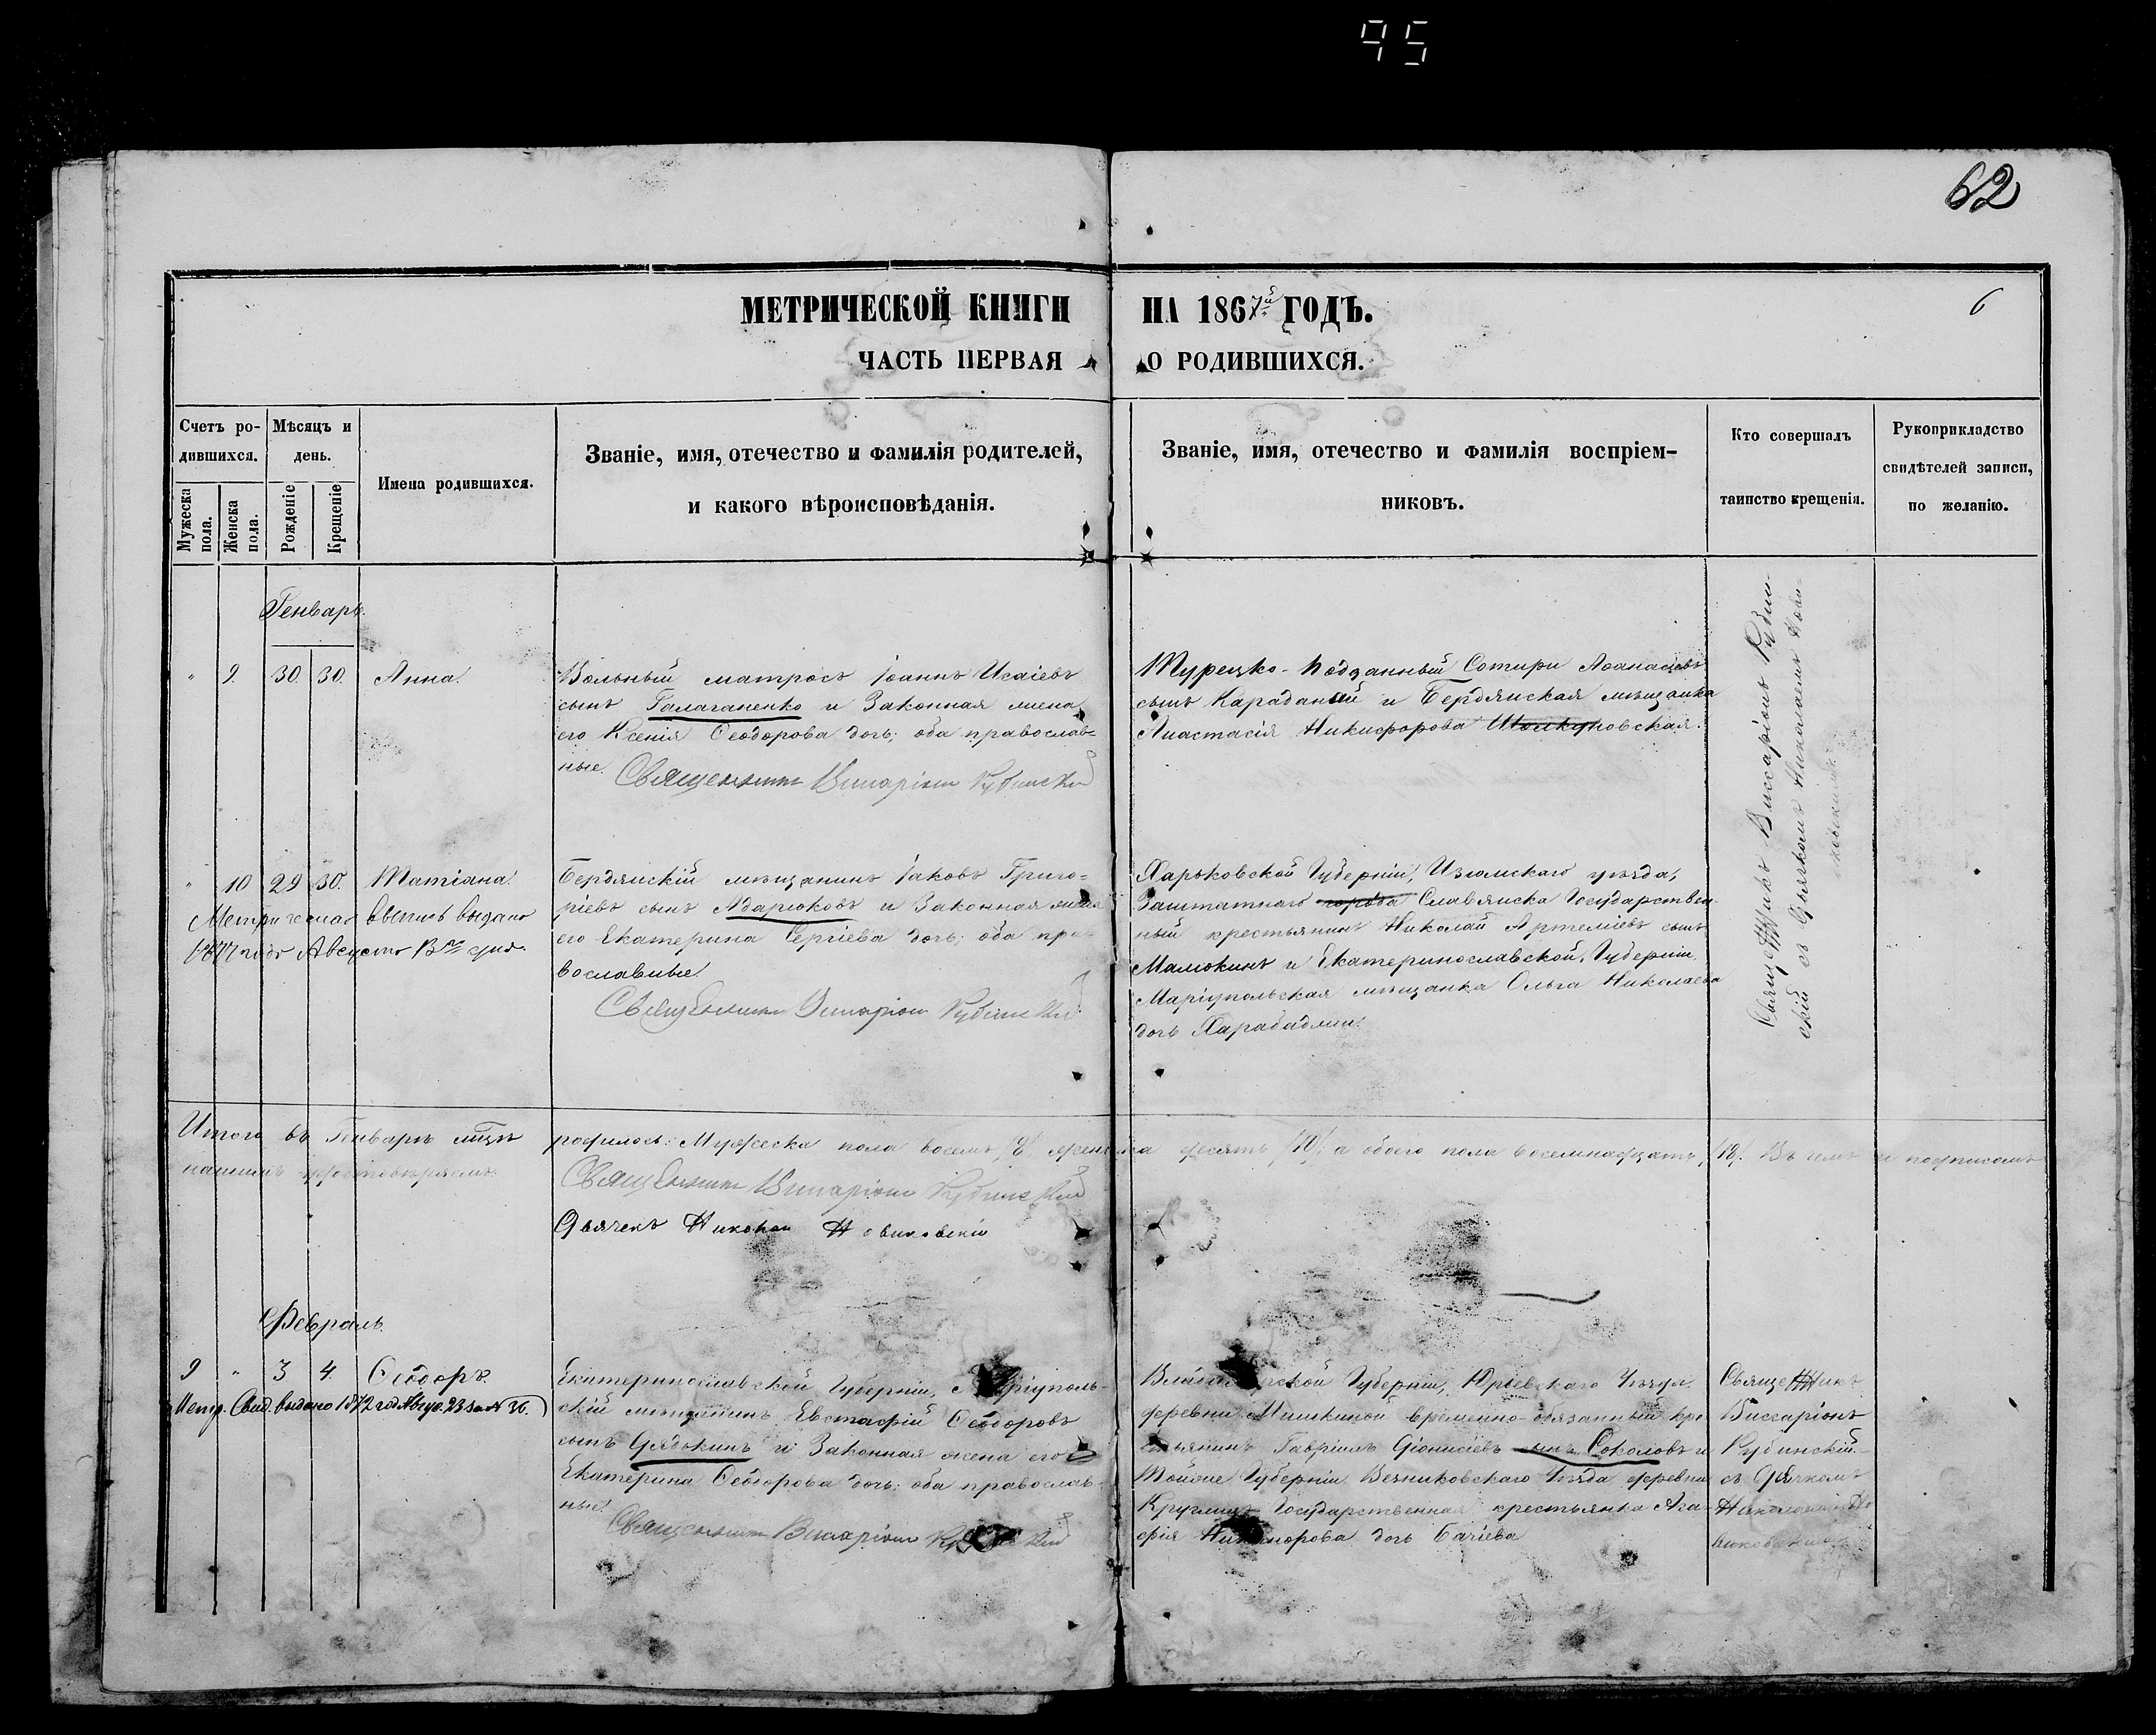 95
62
6
МЕТРИЧЕСКОЙ КНИГИ НА 1867й ГОДЪ.
ЧАСТЬ ПЕРВАЯ О РОДИВШИХСЯ.
Счетъ ро-
дившихся.
Мужеска пола.
Женска пола.
Мѣсяцъ и
день.
Рожденіе
Крещеніе
Имена родившихся.
Званіе, имя, отечество и фамилія родителей,
и какого вѣроисповѣданія.
Званіе, имя, отечество и фамилія воспріем-
никовъ.
Кто совершалъ
таинство крещенія.
Рукоприкладство
свидѣтелей записи,
по желанію.
Генварь.
" 9 30. 30. Анна.
Вольный матросъ Іоаннъ Исаіевъ
сынъ Галаганенко и Законная жена
его Ксенія Ѳеодорова дочь; оба православ-
ные.
Священникъ Виссаріонъ Рубинскій
Турецко-подданный Сотири Аѳанасіевъ
сынъ и Бердянская мѣщанка
Анастасія Никифорова
Священникъ Виссаріонъ Рубин-
скій съ Дьячкомъ Николаемъ Нови-
ковскимъ.
" 10 29 30. Татіана.
Метрическая выпись выдана
1877 года Августа дня.
Бердянскій мѣщанинъ Іаковъ Григо-
ріевъ сынъ Адарюковъ и Законная жена
его Екатерина Сергіева дочь; оба пра-
вославные.
Священникъ Виссаріонъ Рубинскій
Харьковской Губерніи, Изюмскаго уѣзда,
Заштатнаго города Славянска Государствен-
ный крестьянинъ Николай Артеміевъ сынъ
Малюкинъ и Екатеринославской Губерніи
Маріупольская мѣщанка Ольга Николаева
дочь Харабаджи.
Итого въ Генварѣ мцѣ родилось: Мужеска пола восемь /8/ женска десять /10/, а обоего пола восемнадцать /18/. Въ чемъ и подписомъ
нашимъ удостовѣряемъ.
Священникъ Виссаріонъ Рубинскій
Дьячекъ Николай Новиковскій
Февраль.
9 " 3 4. Ѳеодоръ.
Метр. Свид. выдано 1872 год. Авгус. 23 за N 36.
Екатеринославской Губерніи, Маріуполь-
скій мѣщанинъ Евстафій Ѳеодоровъ
сынъ и Законная жена его
Екатерина Ѳеодорова дочь; оба православ-
ные.
Священникъ Виссаріонъ Рубинскій
Владимірской Губерніи, Юрьевскаго Уѣзда
деревни Мишкиной временно-обязанный кре-
стьянинъ Гавріилъ Діонисіевъ сынъ Соколовъ и
Тойже Губерніи Вязниковскаго Уѣзда деревни
Государственная крестьянка Ага-
фія Никанорова дочь
Священникъ
Виссаріонъ
Рубинскій
съ Дьячкомъ
Николаемъ Но
виковскимъ